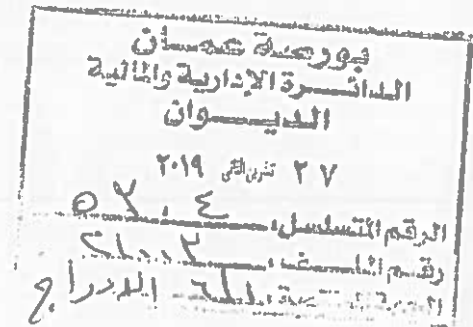 بورصة عمان
الدائرة الإدارية والمالية
الديوان
٢٧ تشرين الثاني ٢٠١٩
الرقم المتسلسل
رقم الملف
الجهة المختصة الإدراج